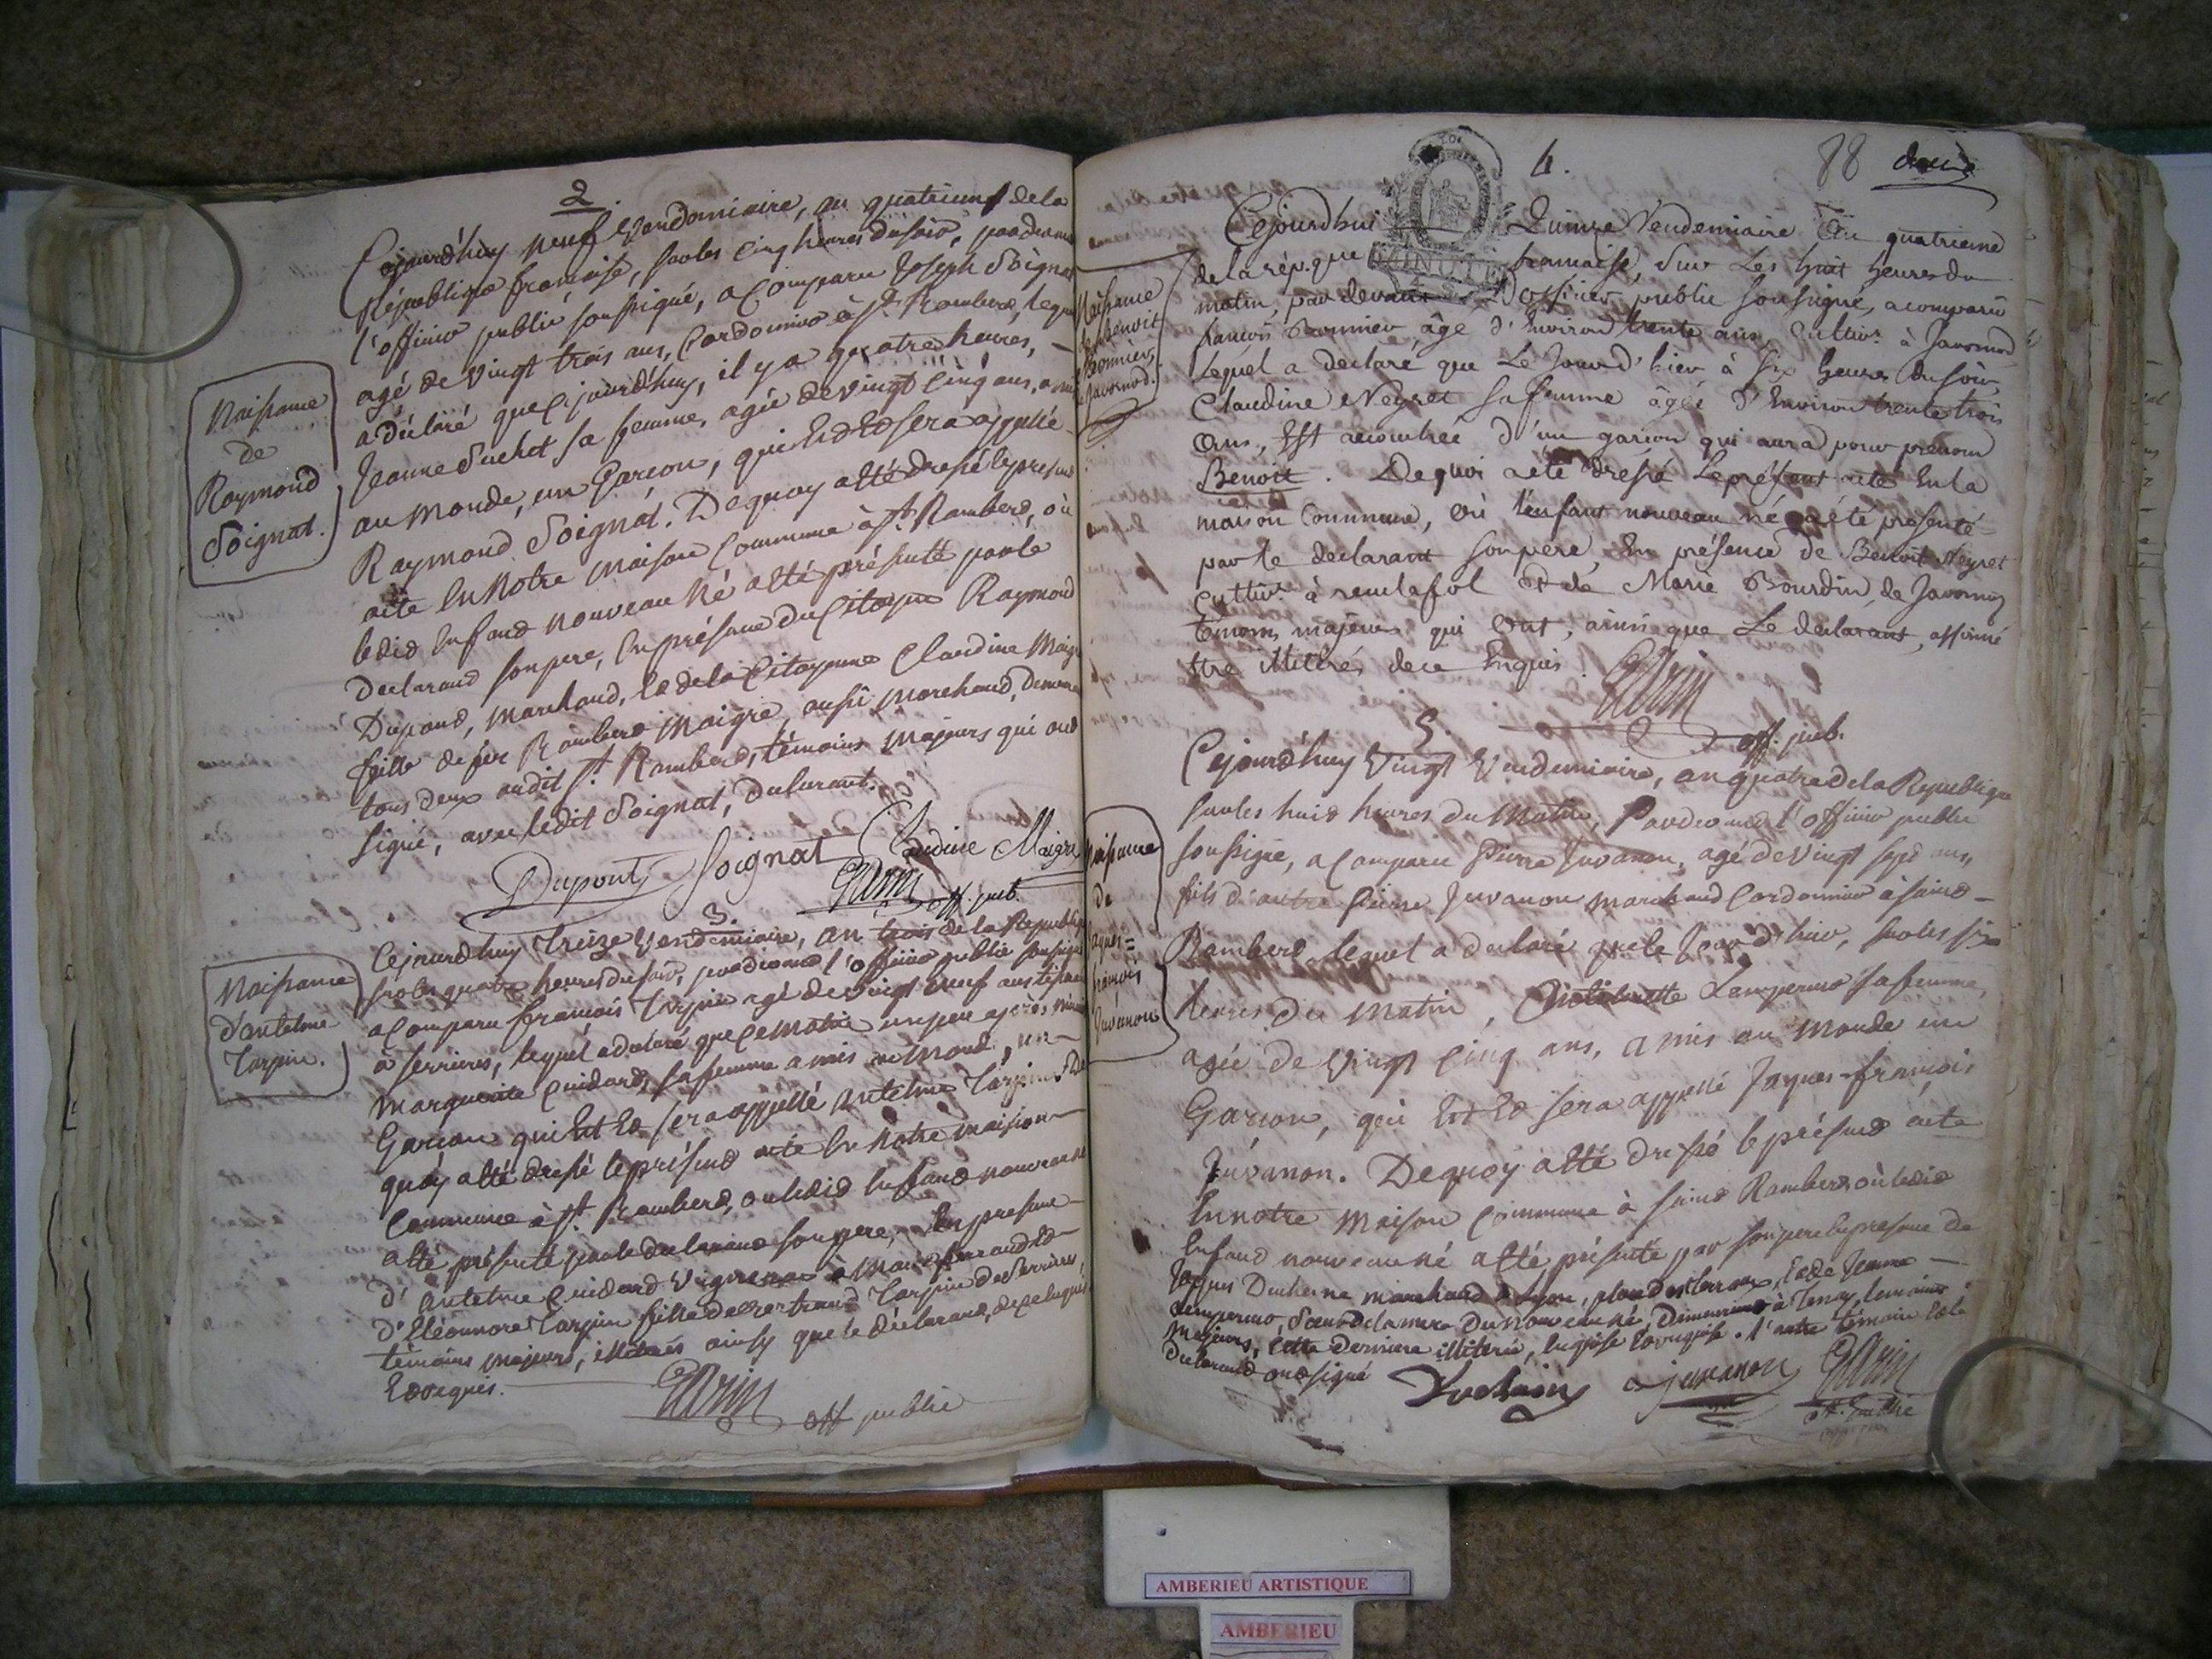 2.
Cejourd'huy neuf Vendemiaire, an quatrieme de la
République française, sur les cinq heures du soir, pardevant
l'officier public soussigné, a comparu Joseph Soignat
agé de vingt trois ans, Cordonnier à St. Rambert, lequel
a déclaré que cejourd'huy, il y a quatre heures,
Jeanne Suchet sa femme, agée de vingt cinq ans, a mis
au monde, un Garcon, qui Est Et sera appellé
Raymond Soignat. Dequoy a été dressé le présent
acte En Notre Maison Commune à St. Rambert, où
ledit Enfant nouveau né a été présenté par le
declarant son pere, En présence du Citoyen Raymond
Dupont, marchand, Et de la Citoyenne Claudine Maigre
fille de feu Rambert Maigre, aussi marchand, demeurant
tous deux audit St. Rambert, témoins majeurs qui ont
signé, avec ledit Soignat, declarant.
Dupont Soignat Claudine Maigre
Garin off. pub.
Naissance
de
Raymond
Soignat.
3.
Cejourd'huy treize Vendemiaire, an trois de la République
sur les quatre heures du soir, pardevant l'officier public soussigné
a comparu françois Tarpin agé de vingt neuf ans
à serrieres, lequel a declaré que ce matin un peu après
marguerite Cuidard, sa femme a mis au Monde, un
Garcon qui Est Et sera appellé Antelme Tarpin. De
quoy a été dressé le présent acte En Notre maison
Commune à St. Rambert, ou ledit Enfant nouveau né
a été présenté par le declarant son pere, En presence
d'Antelme Cuidard Vigneron à Et
d'Eléonnore Tarpin fille de Bertrand Tarpin de Serrieres,
témoins majeurs, illitérés ainsy que le déclarant, de ce Enquis
Et requis.
Garin off public
Naissance
d'antelme
Tarpin.
4. 88 deux
Cejourd'hui Quinze Vendemiaire an quatrieme
de la répque francaise, sur Les huit heures du
matin, par devant L'officier public soussigné, a comparu
francois Bonnier âgé d'Environ trente ans, Cultivr. à Javornod
Lequel a declaré que Le Jour d'hier à six heures du soir,
Claudine Neyret sa femme âgée d'Environ trente trois
ans, Est acouchée d'un garcon qui aura pour prenom
Benoit. De quoi a été dressé Le présent acte En la
maison Commune, où l'enfant nouveau né a été présenté
par le declarant son pere, En présence de Benoit Neyret
Cultivr. à reculafol Et de Marie Bourdin, de Javornod
témoins majeurs qui ont, ainsi que Le declarant, affirmé
Etre illitérés, de ce Enquis.
Garin
off. pub.
Naissance
de benoit
Bonnier
Javornod.
5.
Cejourd'huy Vingt Vendemiaire, an quatre de la Republique
sur les huit heures du Matin, Pardevant l'officier public
soussigné, a Comparu Pierre Juvanon, agé de vingt sept ans,
fils d'autre Pierre Juvanon marchand Cordonnier à saint
Rambert lequel a declaré que le Jour d'hier, sur les six
heures du Matin, Antoinette sa femme,
agée de Vingt cinq ans, a mis au Monde un
Garcon, qui Est Et sera appellé Jaques-françois
Juvanon. Dequoy a été dressé le présent acte
En notre Maison Commune à saint Rambert, où ledit
Enfant nouveau né a été présenté par son pere En presence de
Jaques Duchesne marchand à Lyon, place des terreaux, Et de Jeanne
soeur de la mere du nouveau né, Demeurant à Tenay, témoins
Majeurs, Cette derniere illiterée, Enquise Et requise. l'autre témoin Et le
declarant ont signé
Juvanon Garin
off. public
Naissance
de
Jaques=
francois
Juvanon
AMBERIEU ARTISTIQUE
AMBERIEU